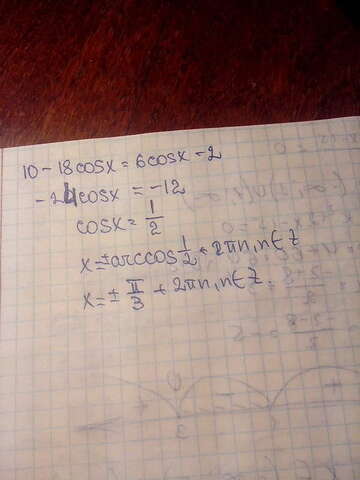 10 - 18cosx = 6cosx - 2
-24cosx = -12
cosx = 1/2
x = ± arccos 1/2 + 2πn, n ∈ Z
x = ± π/3 + 2πn, n ∈ Z